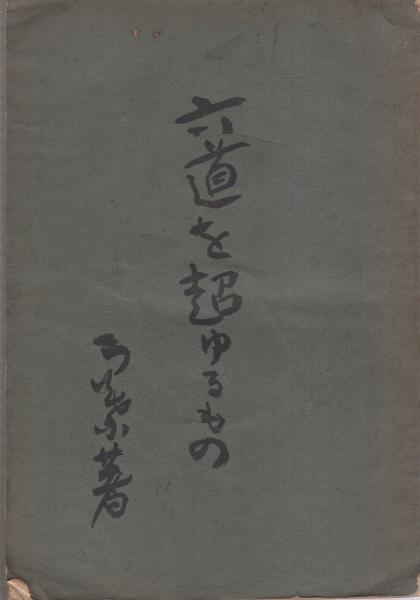 六道を超ゆるもの
著